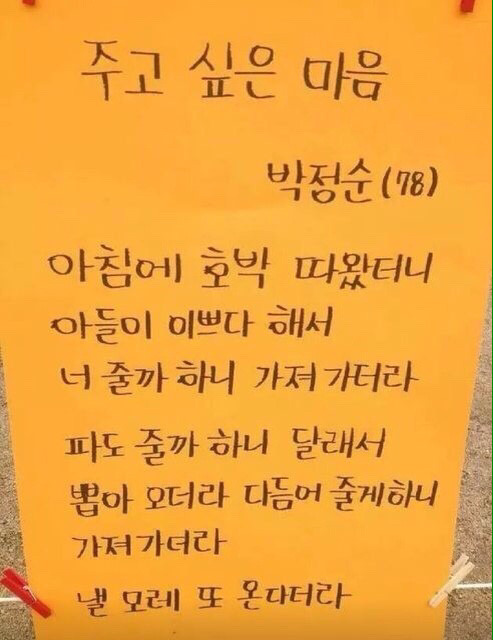 주고 싶은 마음
박정순(78)
아침에 호박 따왔터니
아들이 이쁘다 해서
너 줄까 하니 가져 가더라
파도 줄까 하니 달래서
뽑아 오더라 다듬어 줄게하니
가져가더라
낼 모레 또 온다더라